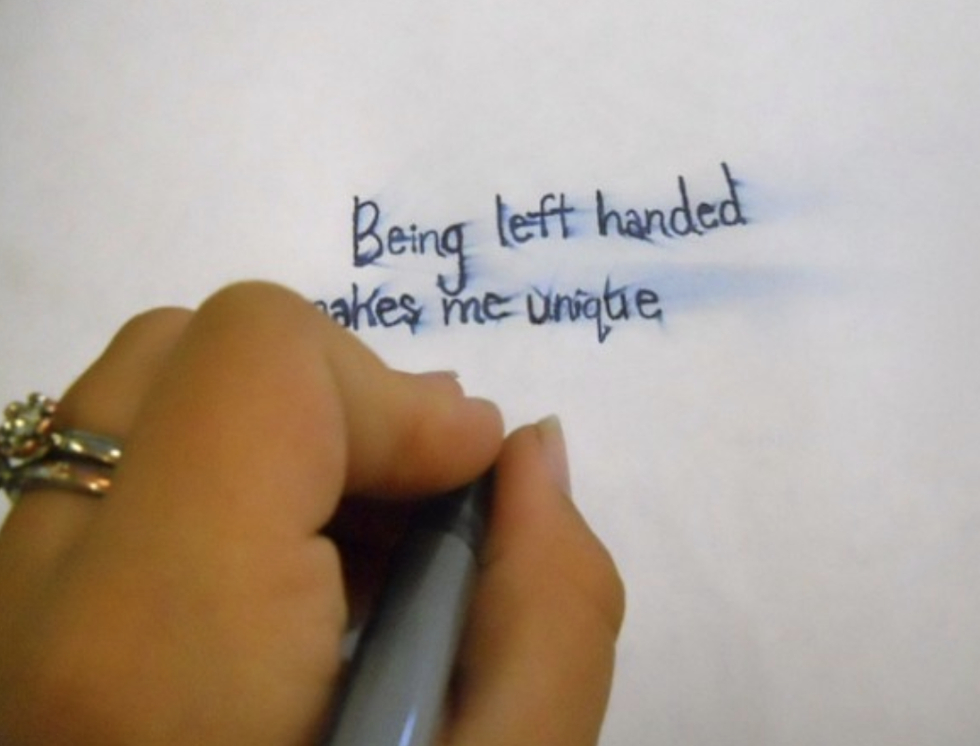 Being left handed
makes me unique